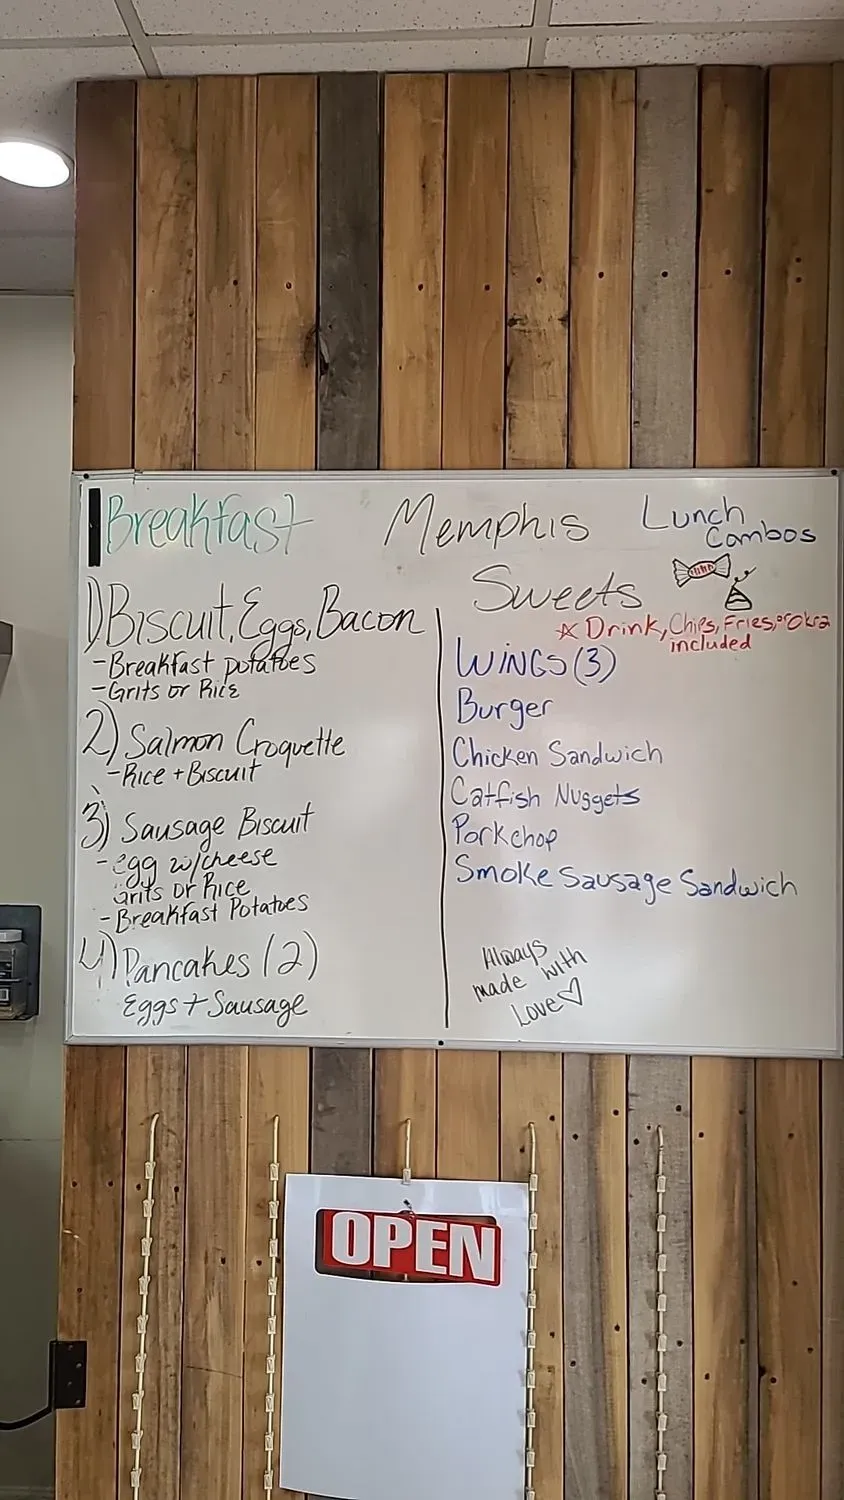 Breakfast
1) Biscuit, Eggs, Bacon
- Breakfast potatoes
- Grits or Rice
2) Salmon Croquette
- Rice + Biscuit
3) Sausage Biscuit
- egg w/cheese
Grits or Rice
- Breakfast Potatoes
4) Pancakes (2)
Eggs + Sausage
Memphis
Sweets
Lunch
Combos
☆ Drink, Chips, Fries, or Okra
included
WiNGS (3)
Burger
Chicken Sandwich
Catfish Nuggets
Porkchop
Smoke Sausage Sandwich
Always
made with
Love ♡
OPEN